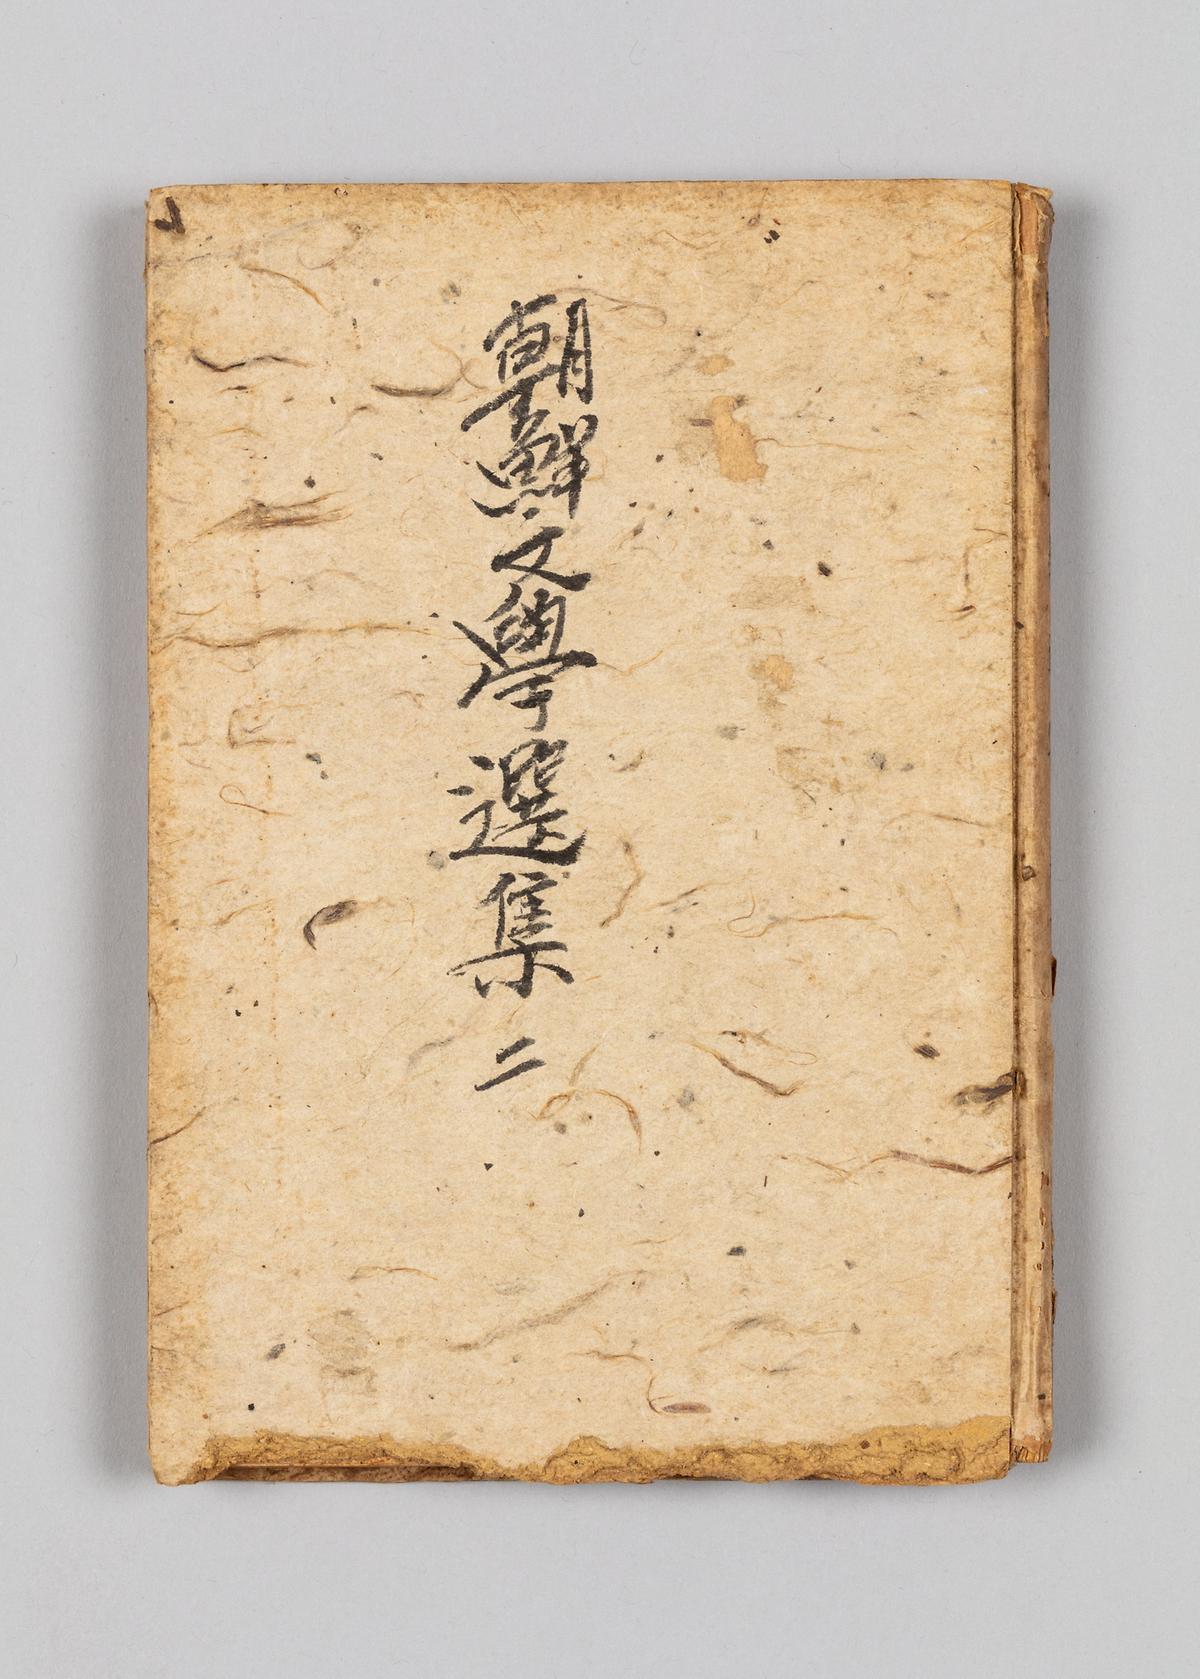 朝鮮文學選集 二